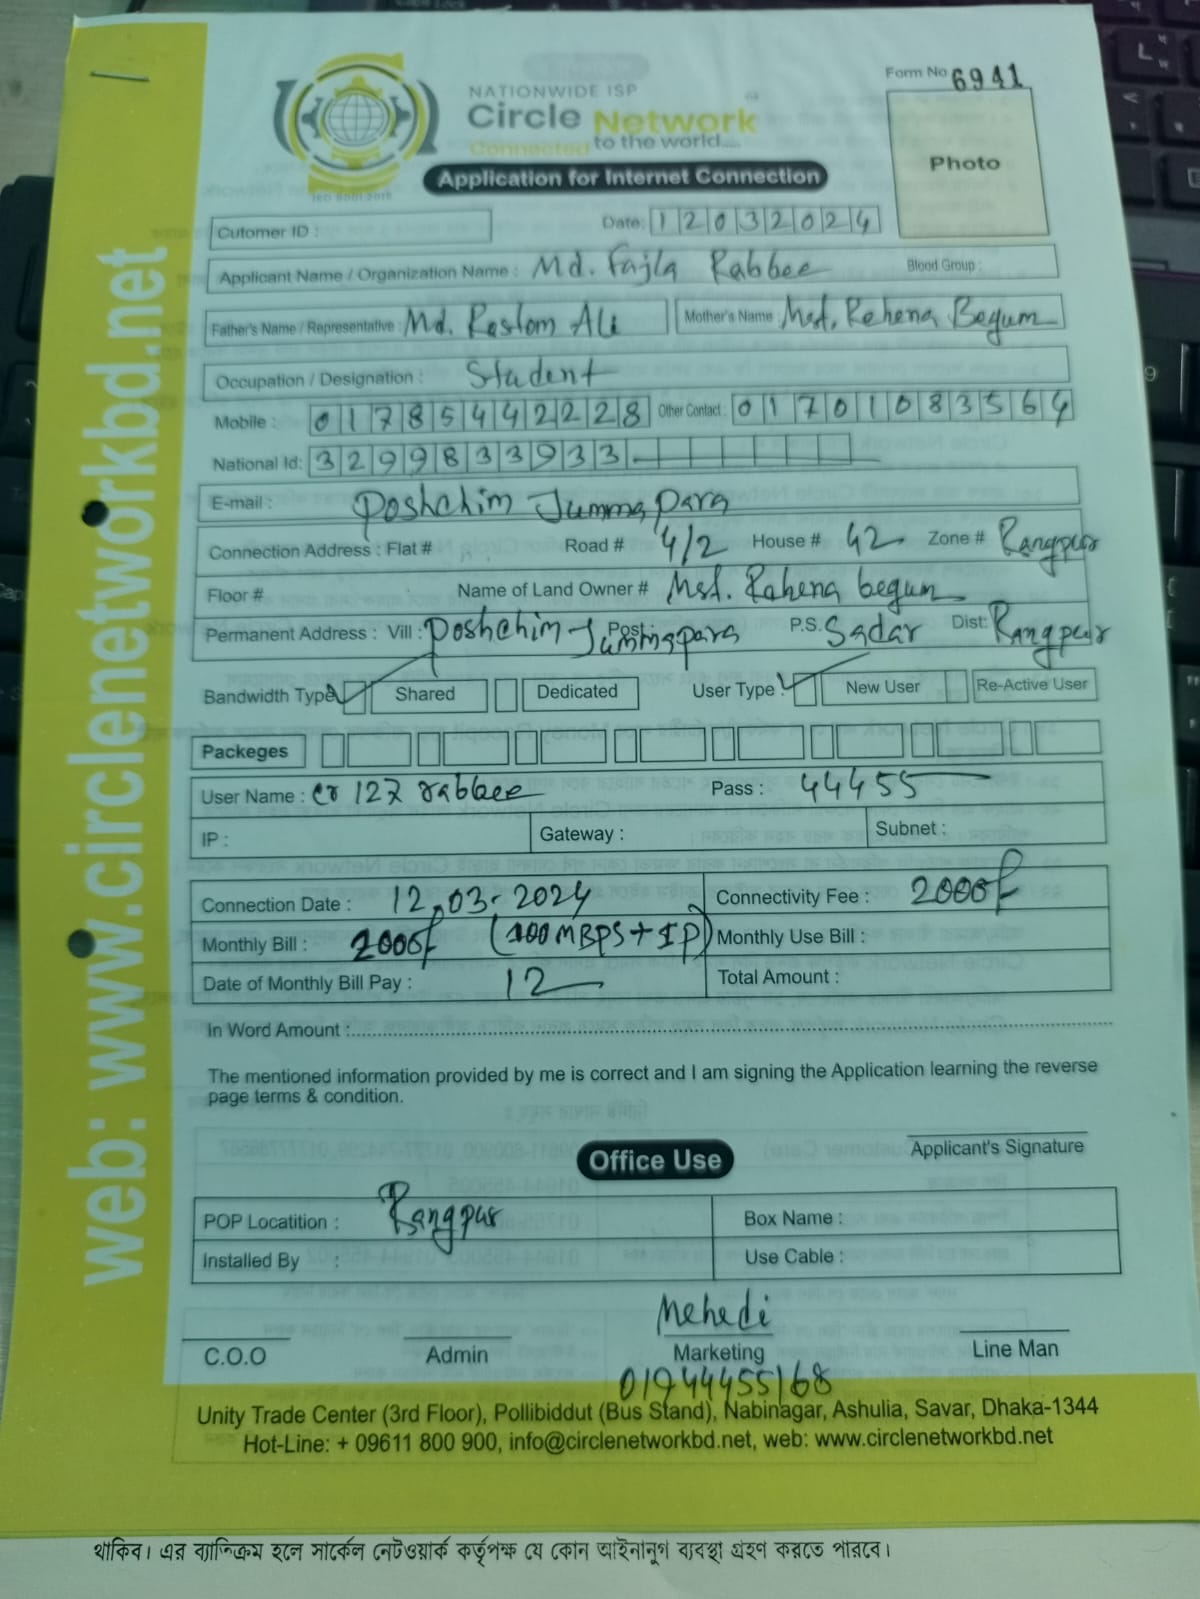 Form No 6941
NATIONWIDE ISP
Circle Network
Connected to the world....
Photo
ISO 9001:2015
Application for Internet Connection
Cutomer ID : Date: 12032024
Applicant Name / Organization Name : Md. Fajla Rabbee Blood Group :
Father's Name / Representative : Md. Rostom Ali Mother's Name : Mst. Rehena Begum
Occupation / Designation : Student
Mobile : 01785442228 Other Contact : 01701083564
National Id: 3299833933
E-mail : Poshchim Jummapara
Connection Address : Flat # Road # 4/2 House # 42 Zone # Rangpur
Floor # Name of Land Owner # Mst. Rahena begum
Permanent Address : Vill : Poshchim Jummapara Post : P.S. Sadar Dist: Rangpur
Bandwidth Type : Shared Dedicated User Type : New User Re-Active User
Packeges
User Name : cr 127 rabbee Pass : 44455
IP : Gateway : Subnet :
Connection Date : 12.03-2024 Connectivity Fee : 2000/-
Monthly Bill : 2000/- (100MBPS+IP) Monthly Use Bill :
Date of Monthly Bill Pay : 12 Total Amount :
In Word Amount :
The mentioned information provided by me is correct and I am signing the Application learning the reverse
page terms & condition.
Applicant's Signature
Office Use
POP Locatition : Rangpur Box Name :
Installed By : Use Cable :
Mehedi
C.O.O Admin Marketing Line Man
01944455168
Unity Trade Center (3rd Floor), Pollibiddut (Bus Stand), Nabinagar, Ashulia, Savar, Dhaka-1344
Hot-Line: + 09611 800 900, info@circlenetworkbd.net, web: www.circlenetworkbd.net
web: www.circlenetworkbd.net
থাকিব। এর ব্যাতিক্রম হলে সার্কেল নেটওয়ার্ক কর্তৃপক্ষ যে কোন আইনানুগ ব্যবস্থা গ্রহণ করতে পারবে।